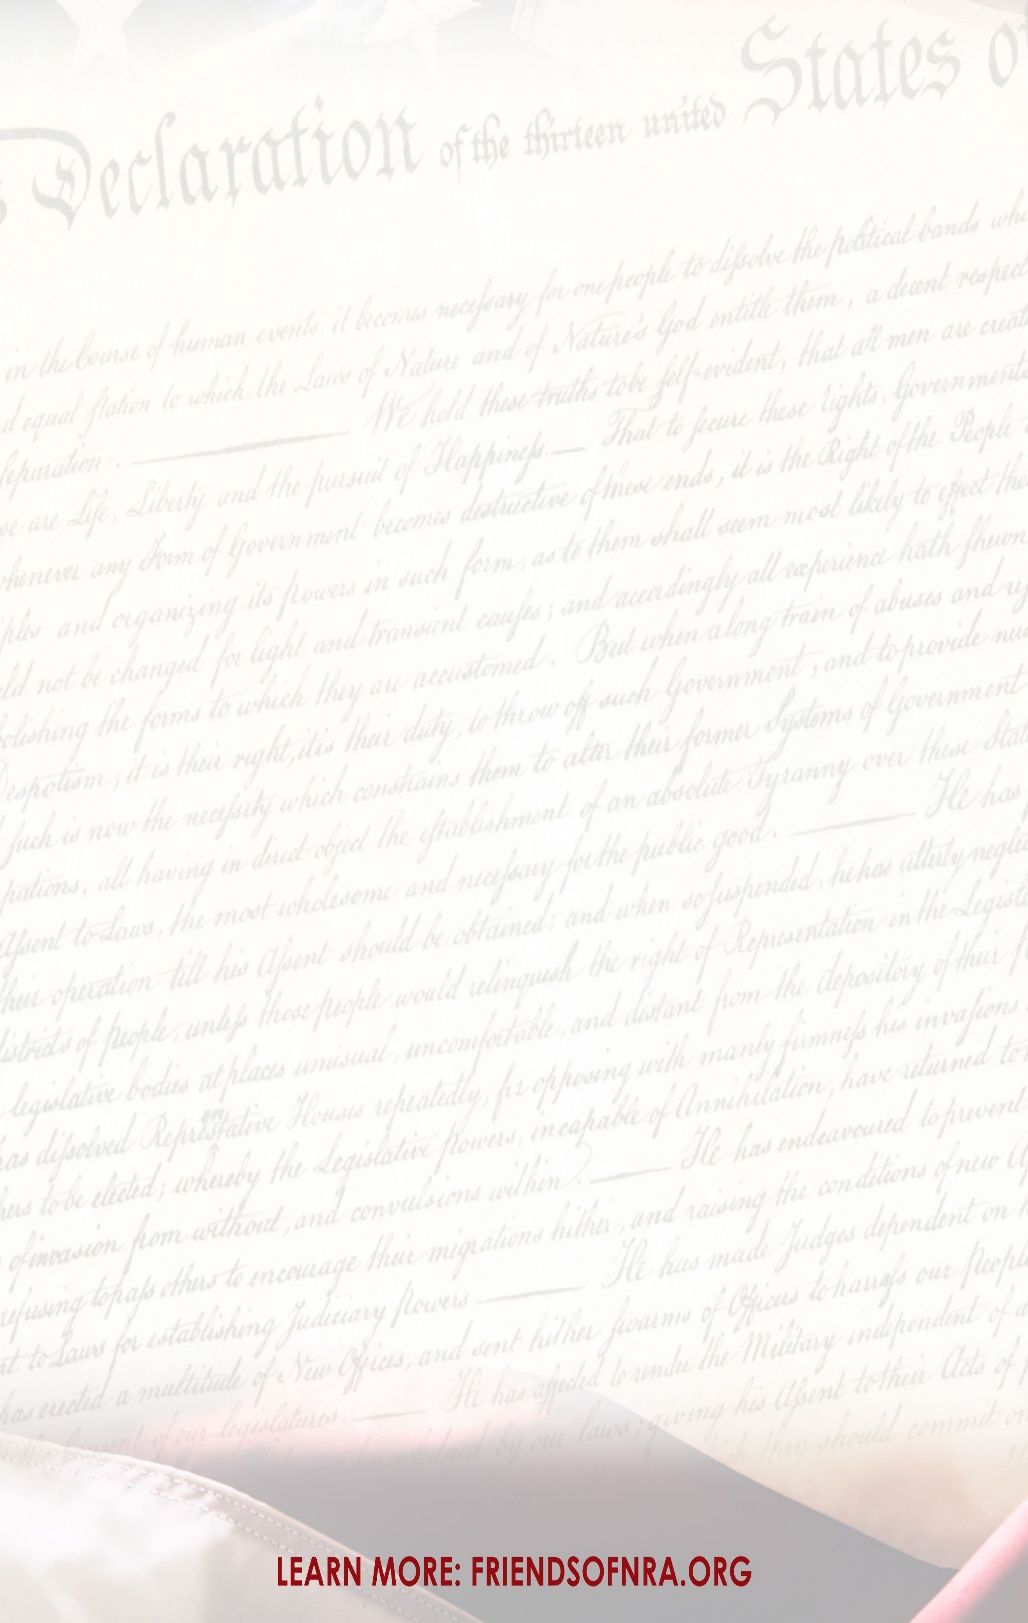 Declaration of the thirteen united States of
in the Course of human events, it becomes necessary for one people to dissolve the political bands
equal station to which the Laws of Nature and of Nature's God entitle them, a decent respect
separation. We hold these truths to be self-evident, that all men are
are Life, Liberty and the pursuit of Happiness. — That to secure these rights, Governments
whenever any Form of Government becomes destructive of these ends, it is the Right of the People
and organizing its powers in such form, as to them shall seem most likely to effect
not be changed for light and transient causes; and accordingly all experience hath shewn
the forms to which they are accustomed. But when a long train of abuses and
Despotism, it is their right, it is their duty, to throw off such Government, and to provide
such is now the necessity which constrains them to alter their former Systems of Government
all having in direct object the establishment of an absolute Tyranny over these
Assent to Laws, the most wholesome and necessary for the public good. He has
their operation till his Assent should be obtained; and when so suspended, he has utterly
districts of people, unless those people would relinquish the right of Representation in the
legislative bodies at places unusual, uncomfortable, and distant from the depository of their
has dissolved Representative Houses repeatedly, for opposing with manly firmness his invasions
to be elected; whereby the Legislative powers, incapable of Annihilation, have returned to
of invasion from without, and convulsions within. He has endeavoured to prevent
refusing to pass others to encourage their migrations hither, and raising the conditions of new
to Laws for establishing Judiciary powers He has made Judges dependent on
has erected a multitude of New Offices, and sent hither swarms of Officers to harrass our People
of our legislatures. He has affected to render the Military independent of
by our laws; giving his Assent to their Acts of
they should commit on
LEARN MORE: FRIENDSOFNRA.ORG